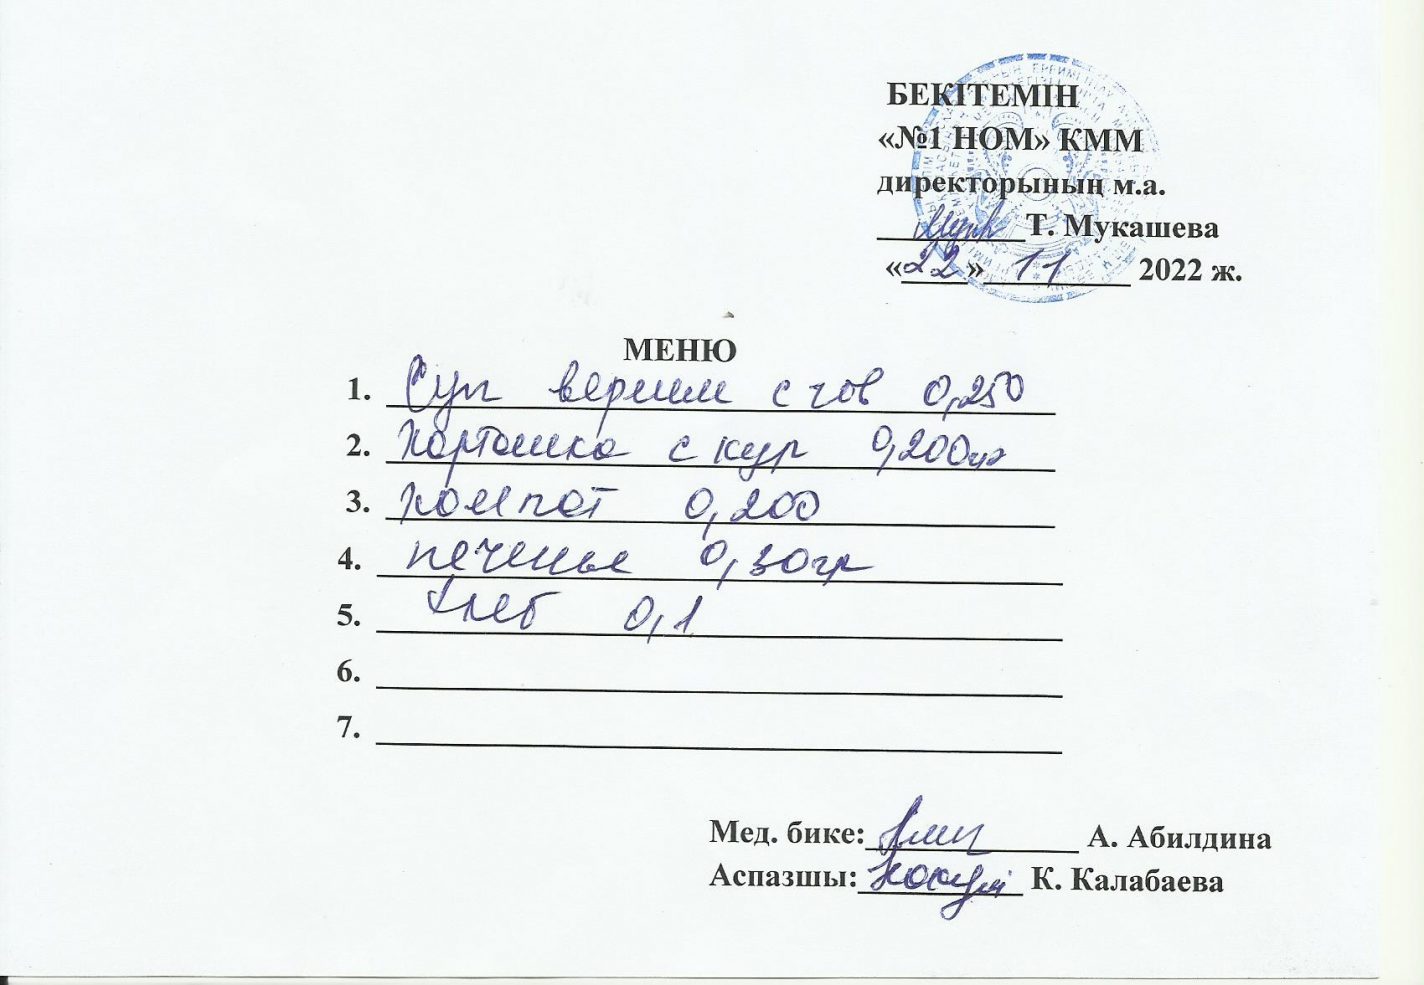 БЕКІТЕМІН
«№1 НОМ» КММ
директорының м.а.
Т. Мукашева
«22» 11 2022 ж.
МЕНЮ
1. Суп вермим с гов 0,250
2. Картошка с кур 0,200
3. Компот 0,200
4. печенье 0,30гр
5. Хлеб 0,1
6.
7.
Мед. бике: А. Абилдина
Аспазшы: К. Калабаева